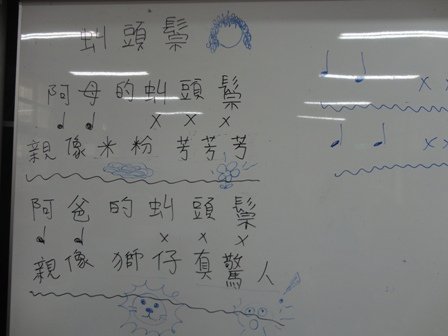 虯頭鬃
阿母的虯頭鬃
♩ ♩ x x x
親像米粉芳芳芳
阿爸的虯頭鬃
♩ ♩ x x x
親像獅仔真驚人
♩ ♩ x x
♩ ♩ x x